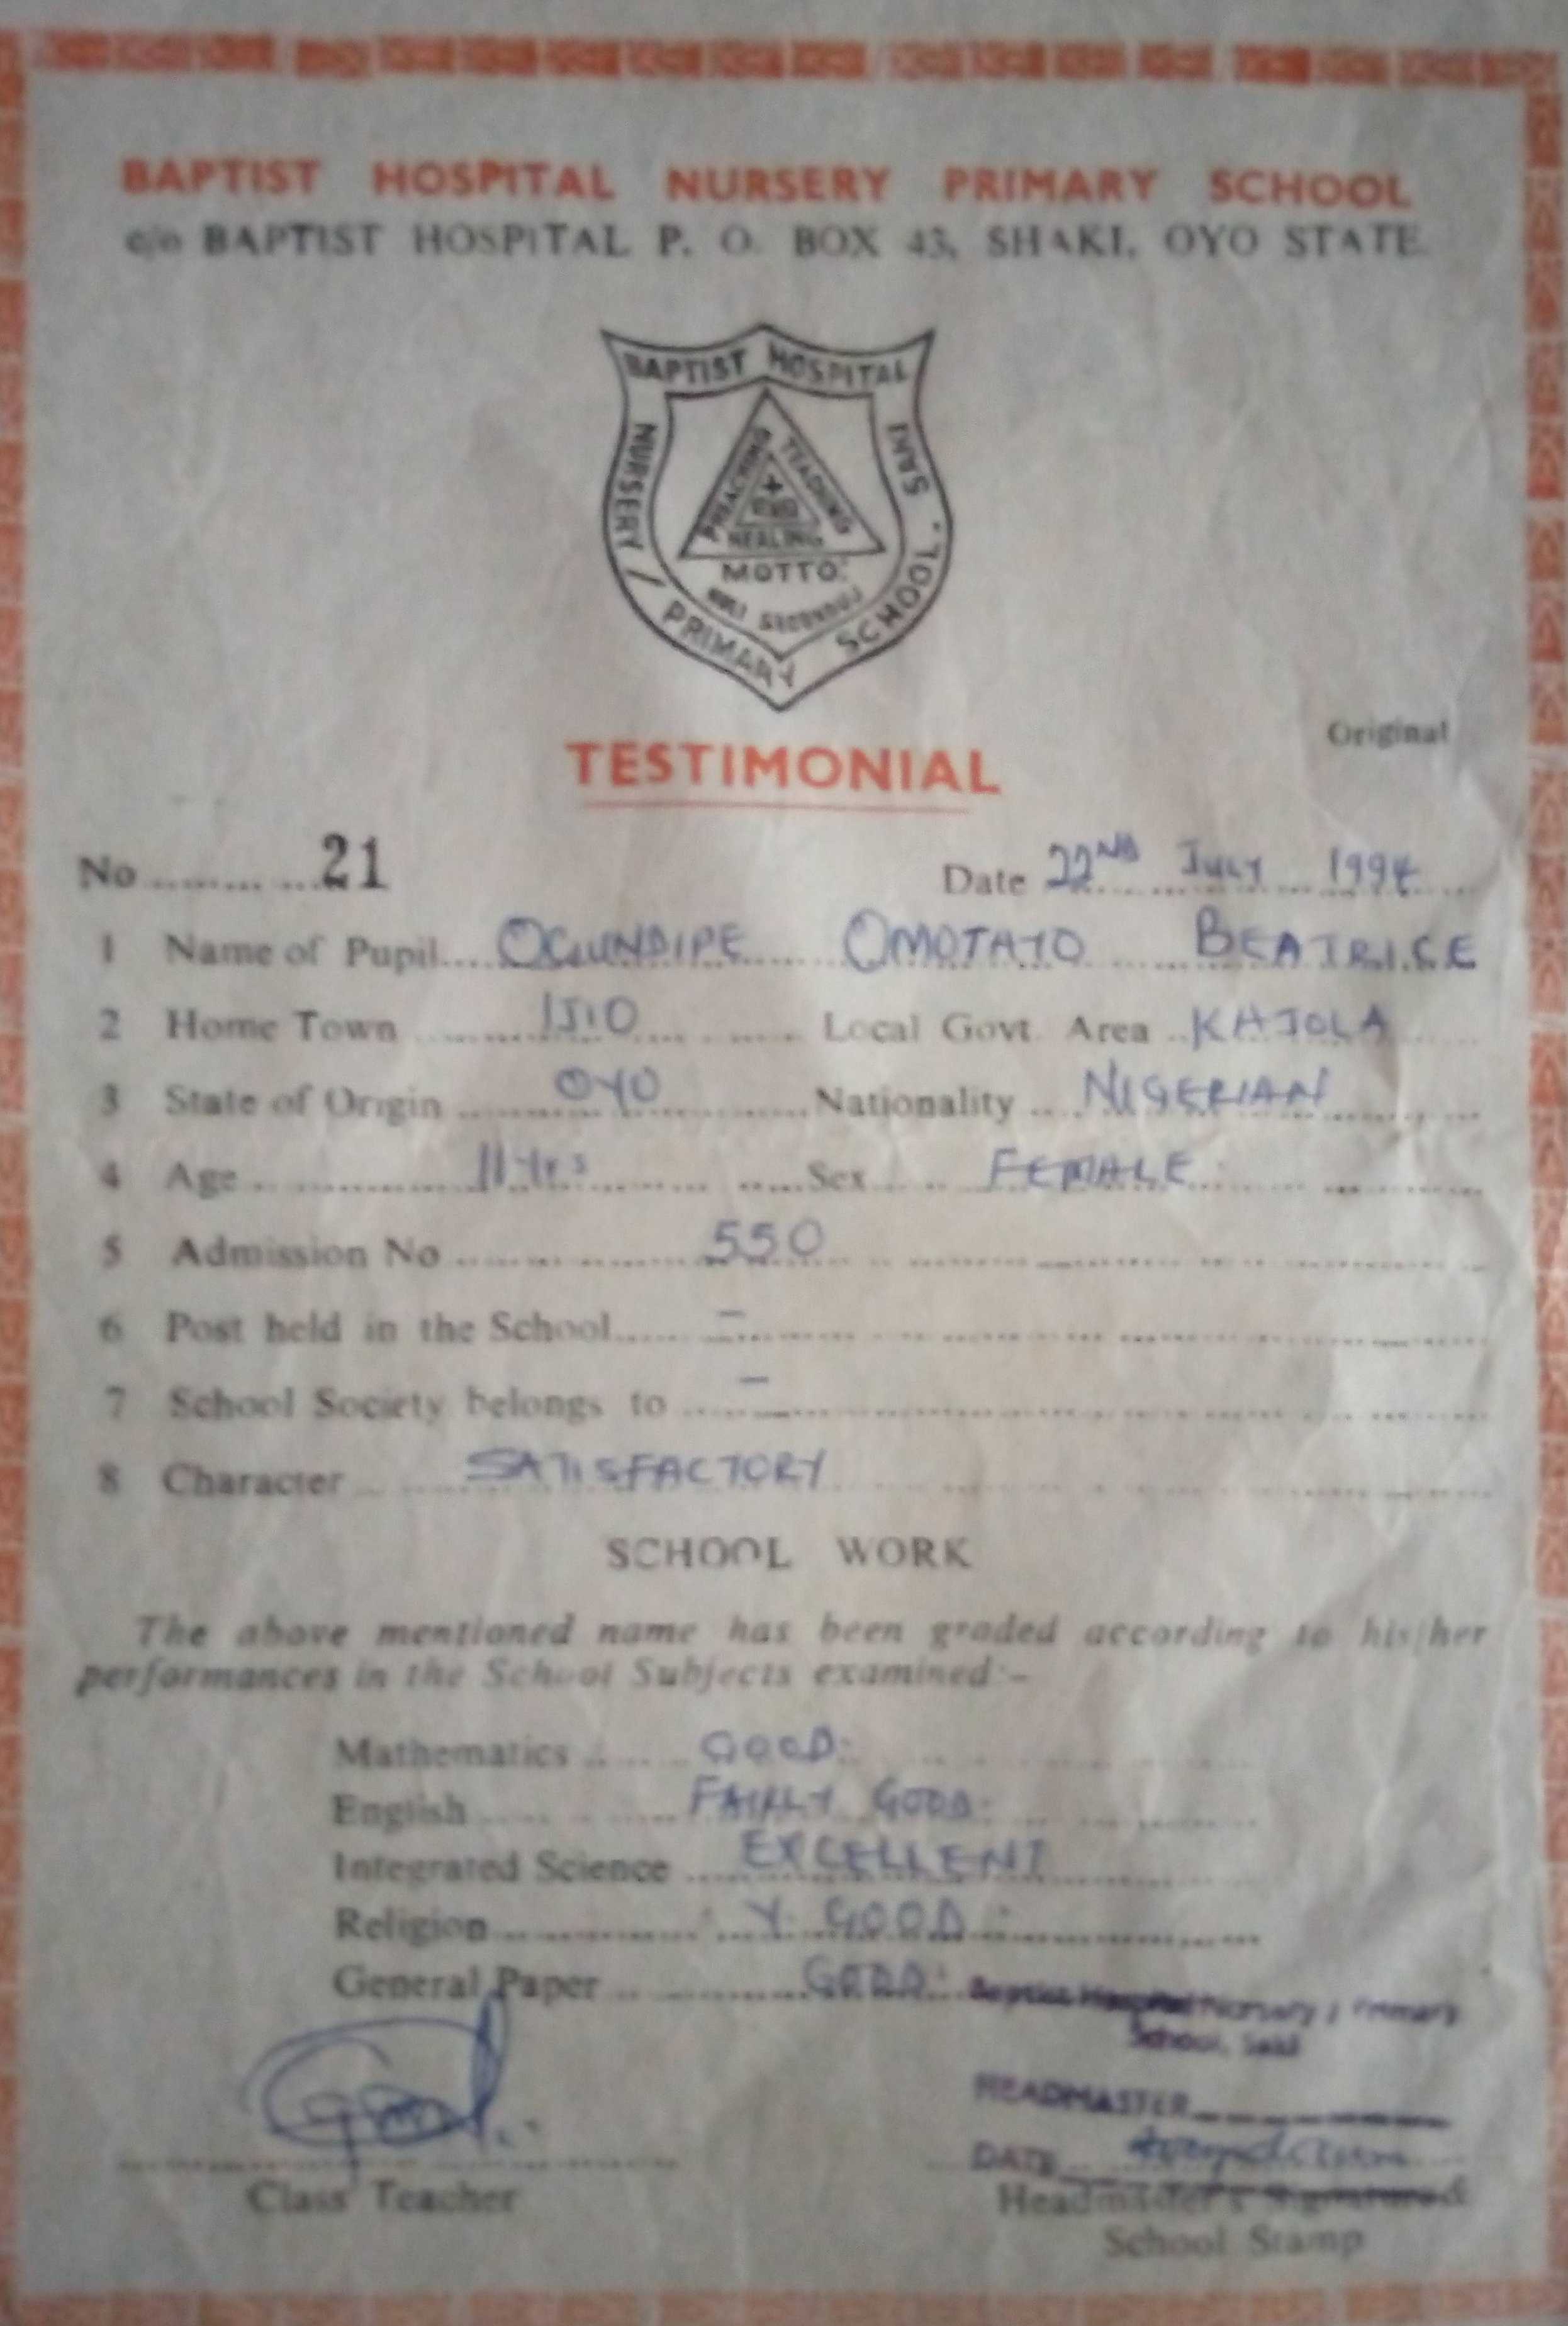 BAPTIST HOSPITAL NURSERY PRIMARY SCHOOL
c/o BAPTIST HOSPITAL P. O. BOX 43, SHAKI, OYO STATE.
BAPTIST HOSPITAL SAKI
NURSERY / PRIMARY SCHOOL.
PREACHING TEACHING
HEALING
MOTTO:
Original
TESTIMONIAL
No 21 Date 22ND JULY 1994
1 Name of Pupil OGUNDIPE OMOTAYO BEATRICE
2 Home Town IJIO Local Govt. Area KAJOLA
3 State of Origin OYO Nationality NIGERIAN
4 Age 11Yrs Sex FEMALE
5 Admission No 550
6 Post held in the School –
7 School Society belongs to –
8 Character SATISFACTORY
SCHOOL WORK
The above mentioned name has been graded according to his/her
performances in the School Subjects examined:-
Mathematics GOOD
English FAIRLY GOOD
Integrated Science EXCELLENT
Religion V. GOOD
General Paper GOOD
Baptist Hospital Nursery / Primary
School, Saki
HEADMASTER
DATE
Class Teacher Headmaster's Signature &
School Stamp